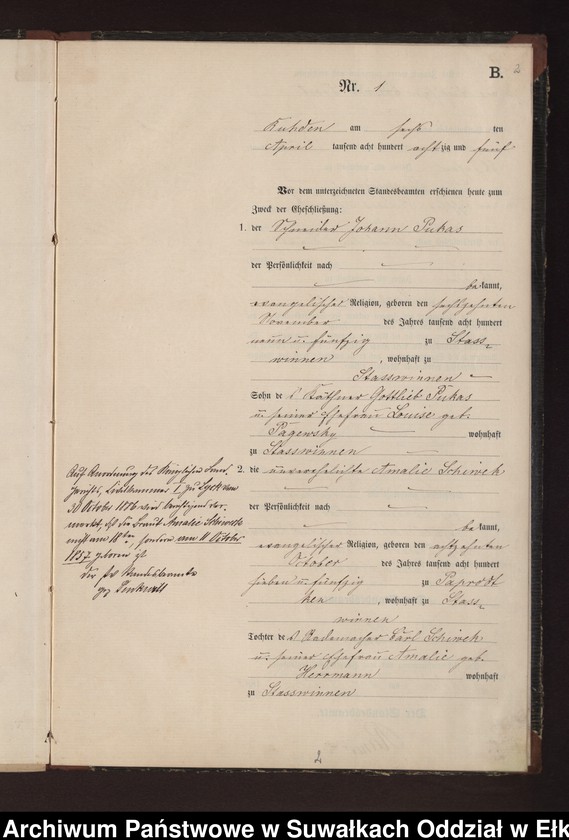 B. 2
Nr. 1
Ruhden am sechs ten
April tausend acht hundert achtzig und fünf
Vor dem unterzeichneten Standesbeamten erschienen heute zum
Zweck der Eheschließung:
1. der Schneider Johann Pukas
der Persönlichkeit nach
bekannt,
evangelischer Religion, geboren den sechszehnten
November des Jahres tausend acht hundert
neun u. fünfzig zu Stass-
winnen, wohnhaft zu
Stasswinnen
Sohn des Käthner Gottlieb Pukas
u. seiner Ehefrau Louise geb.
wohnhaft
zu Stasswinnen
2. die unverehelichte Amalie Schiwek
der Persönlichkeit nach
bekannt,
evangelischer Religion, geboren den achtzehnten
October des Jahres tausend acht hundert
sieben u. fünfzig zu Paprodt
ken, wohnhaft zu Stass-
winnen
Tochter des Rademacher Carl Schiwek
u. seiner Ehefrau Amalie geb.
Herrmann wohnhaft
zu Stasswinnen
Auf Anordnung des Königlichen Land-
gerichts, Civilkammer I, zu Lyck vom
30 October 1886 wird berichtigend ver-
merkt, daß die Braut Amalie Schiwek
nicht am 18ten, sondern am 11 October
1857 geboren ist
Der Standesbeamte
gez.
2
Archiwum Państwowe w Suwałkach Oddział w Ełk